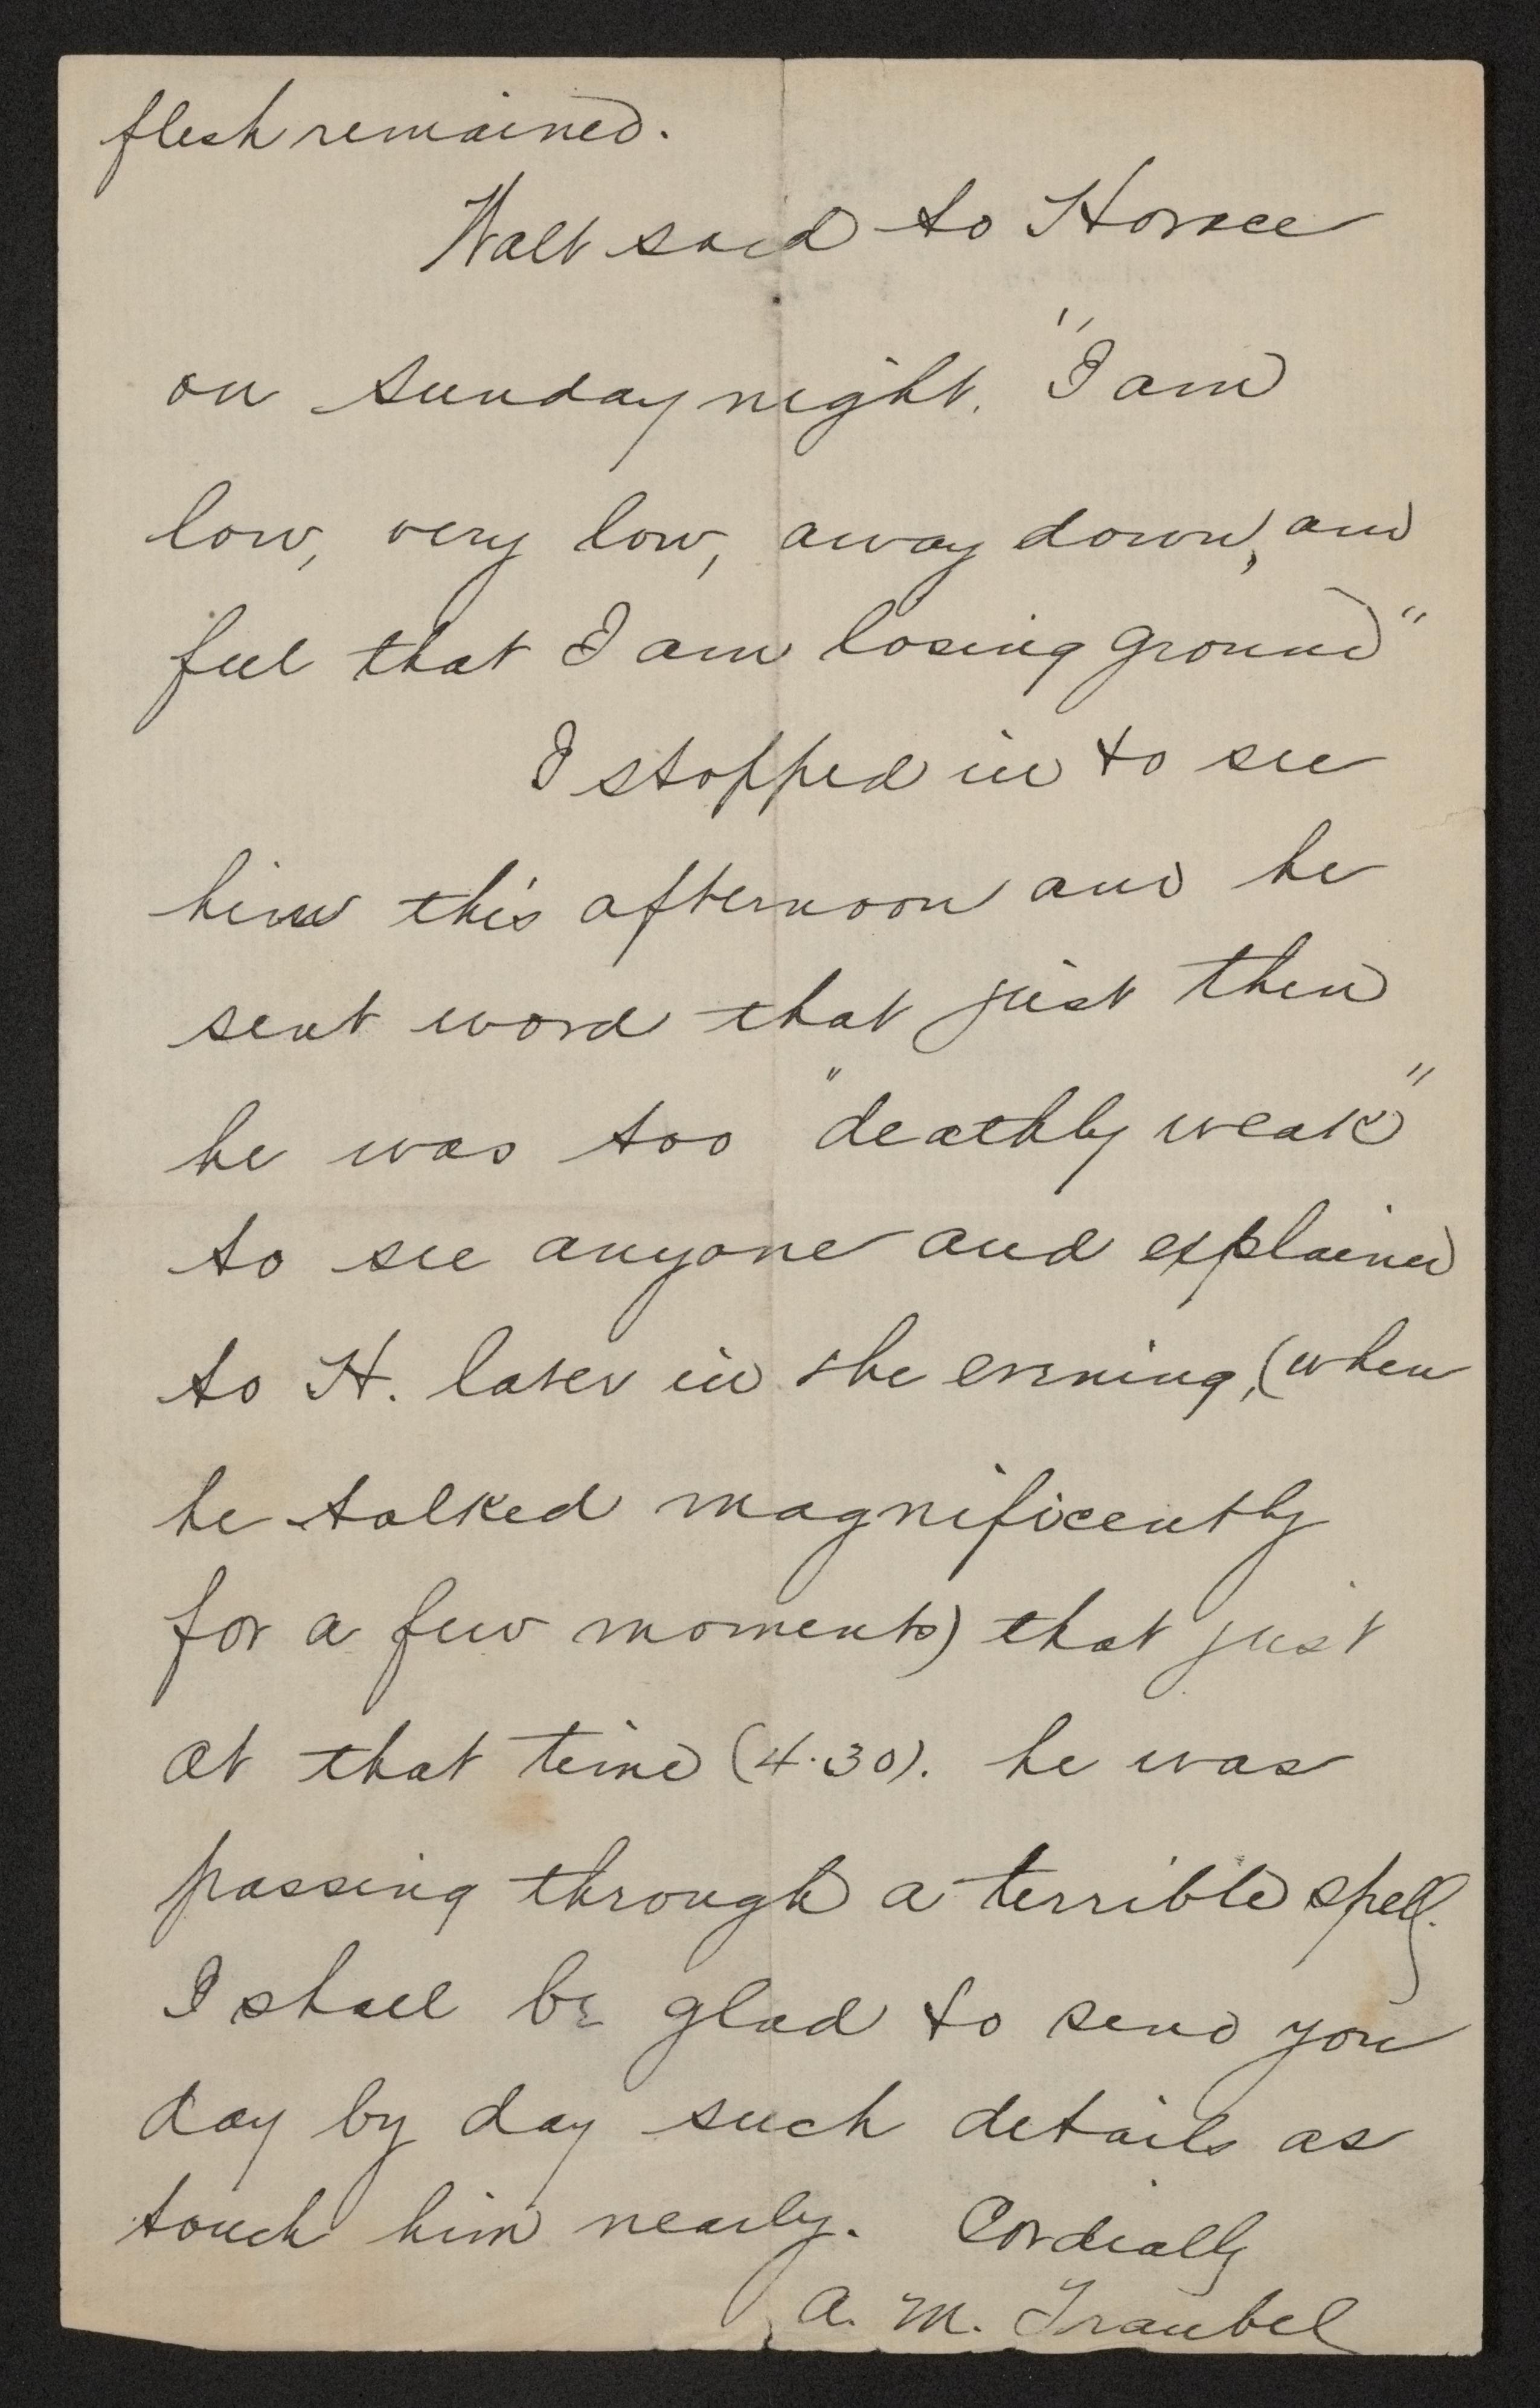 flesh remained.
Walt said to Horace
on Sunday night. "I am
low, very low, away down, and
feel that I am losing ground"
I stopped in to see
him this afternoon and he
sent word that just then
he was too "deathly weak"
to see anyone and explained
to H. later in the evening, (when
he talked magnificently
for a few moments) that just
at that time (4.30). he was
passing through a terrible spell.
I shall be glad to send you
day by day such details as
touch him nearly. Cordially
A. M. Traubel